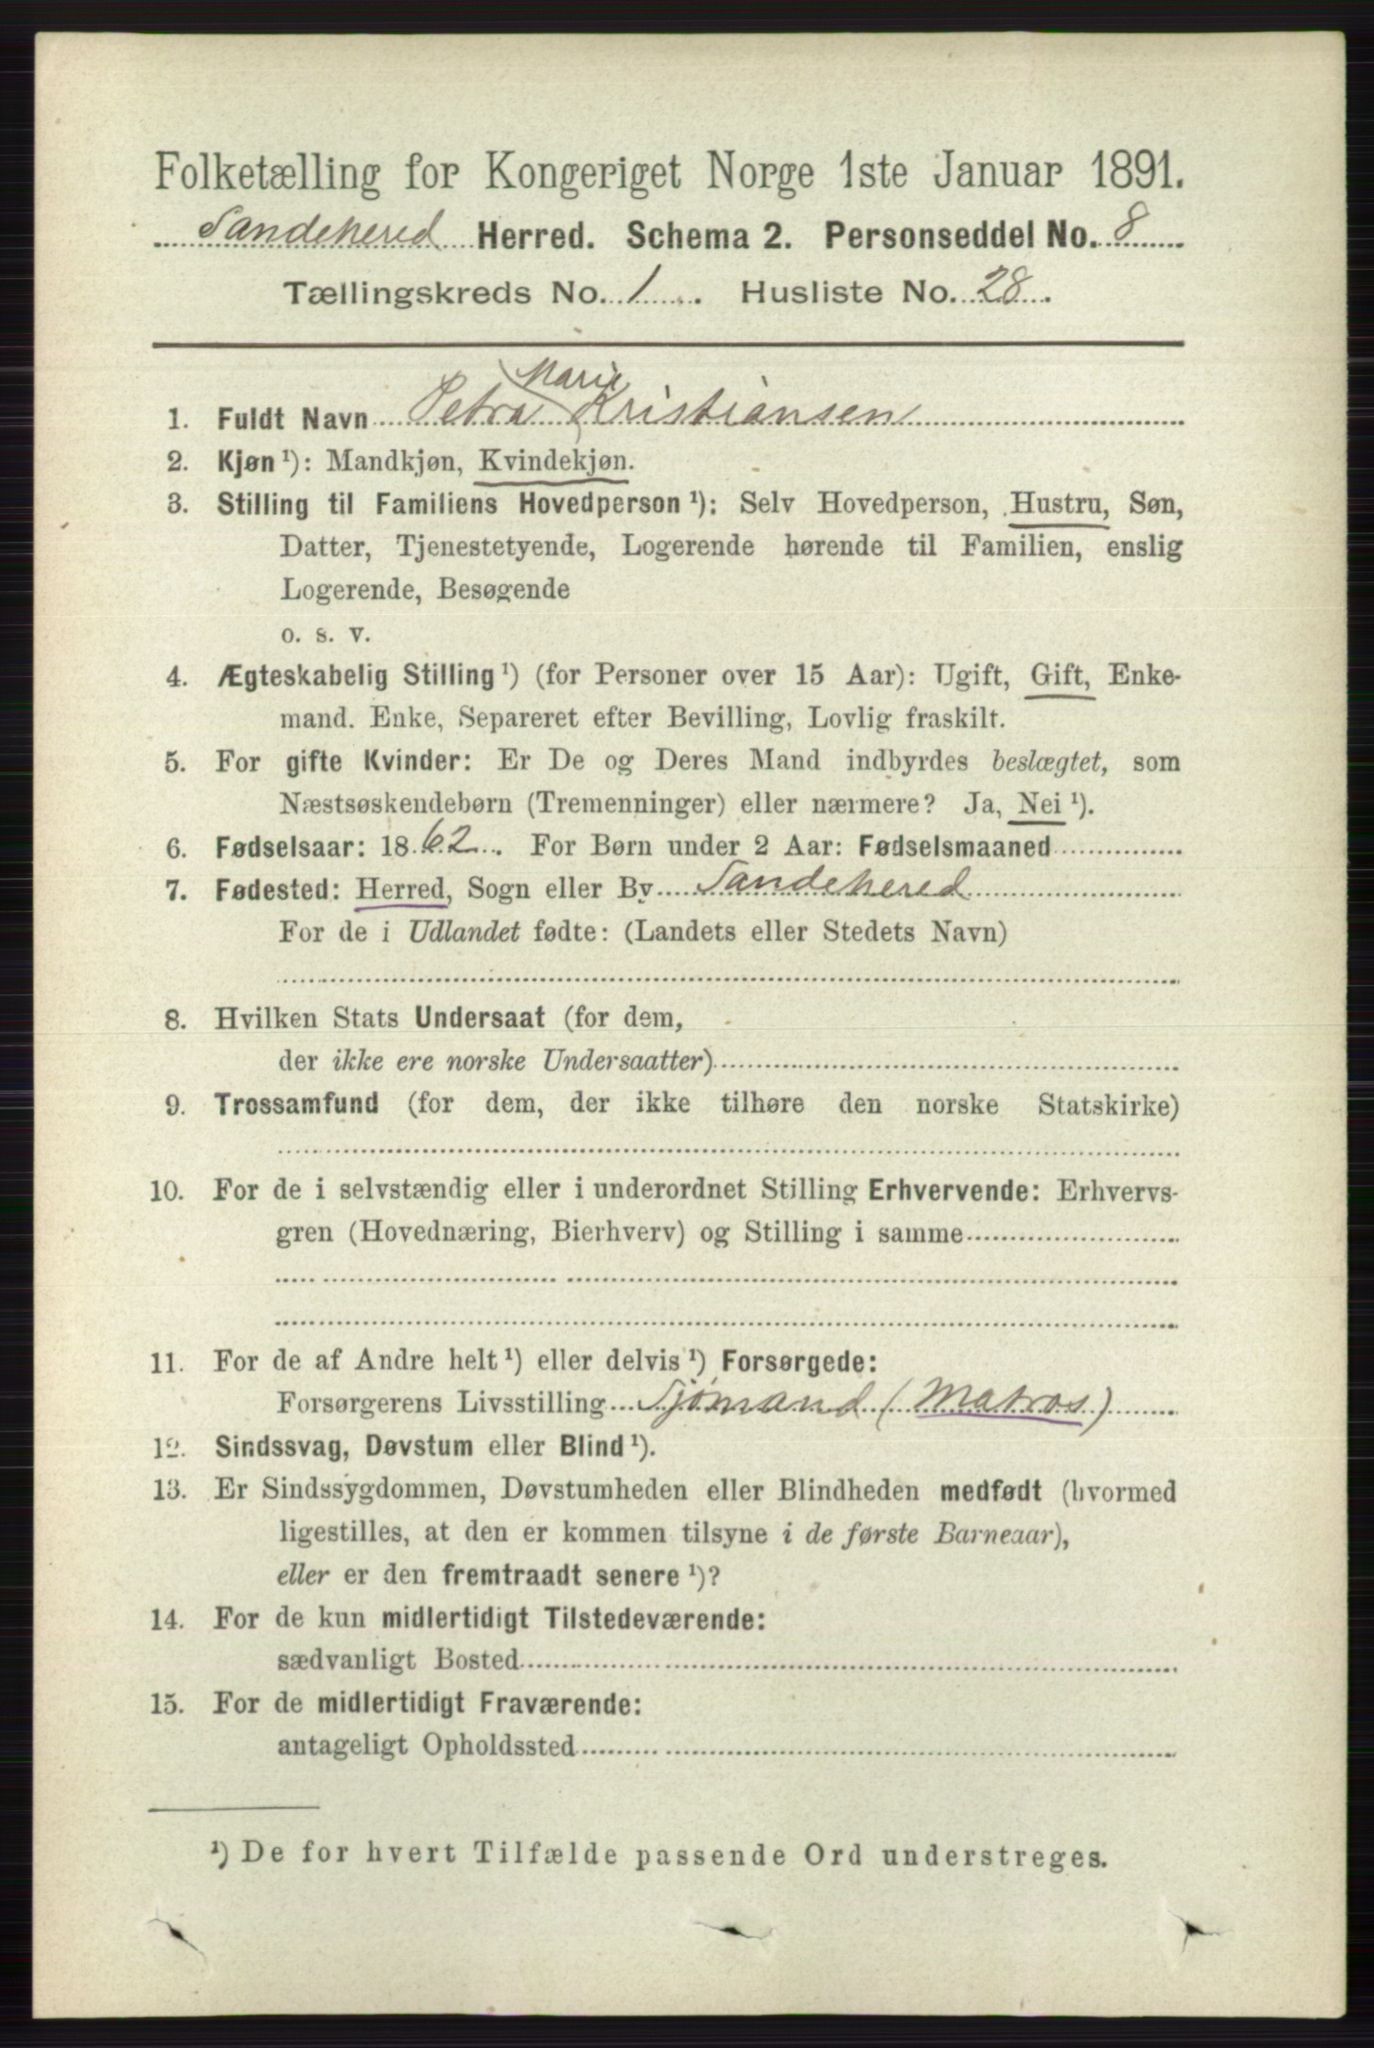 Folketælling for Kongeriget Norge 1ste Januar 1891.
Sandehered Herred. Schema 2. Personseddel No. 8
Tællingskreds No. 1. Husliste No. 28.
Marie
1. Fuldt Navn Petra Kristiansen
2. Kjøn ¹): Mandkjøn, Kvindekjøn.
3. Stilling til Familiens Hovedperson ¹): Selv Hovedperson, Hustru, Søn,
Datter, Tjenestetyende, Logerende hørende til Familien, enslig
Logerende, Besøgende
o. s. v.
4. Ægteskabelig Stilling ¹) (for Personer over 15 Aar): Ugift, Gift, Enke-
mand. Enke, Separeret efter Bevilling, Lovlig fraskilt.
5. For gifte Kvinder: Er De og Deres Mand indbyrdes beslægtet, som
Næstsøskendebørn (Tremenninger) eller nærmere? Ja, Nei ¹).
6. Fødselsaar: 1862. For Børn under 2 Aar: Fødselsmaaned
7. Fødested: Herred, Sogn eller By Sandehered
For de i Udlandet fødte: (Landets eller Stedets Navn)
8. Hvilken Stats Undersaat (for dem,
der ikke ere norske Undersaatter)
9. Trossamfund (for dem, der ikke tilhøre den norske Statskirke)
10. For de i selvstændig eller i underordnet Stilling Erhvervende: Erhvervs-
gren (Hovednæring, Bierhverv) og Stilling i samme
11. For de af Andre helt ¹) eller delvis ¹) Forsørgede:
Forsørgerens Livsstilling Sjømand (Matros)
12. Sindssvag, Døvstum eller Blind ¹).
13. Er Sindssygdommen, Døvstumheden eller Blindheden medfødt (hvormed
ligestilles, at den er kommen tilsyne i de første Barneaar),
eller er den fremtraadt senere ¹)?
14. For de kun midlertidigt Tilstedeværende:
sædvanligt Bosted
15. For de midlertidigt Fraværende:
antageligt Opholdssted
¹) De for hvert Tilfælde passende Ord understreges.